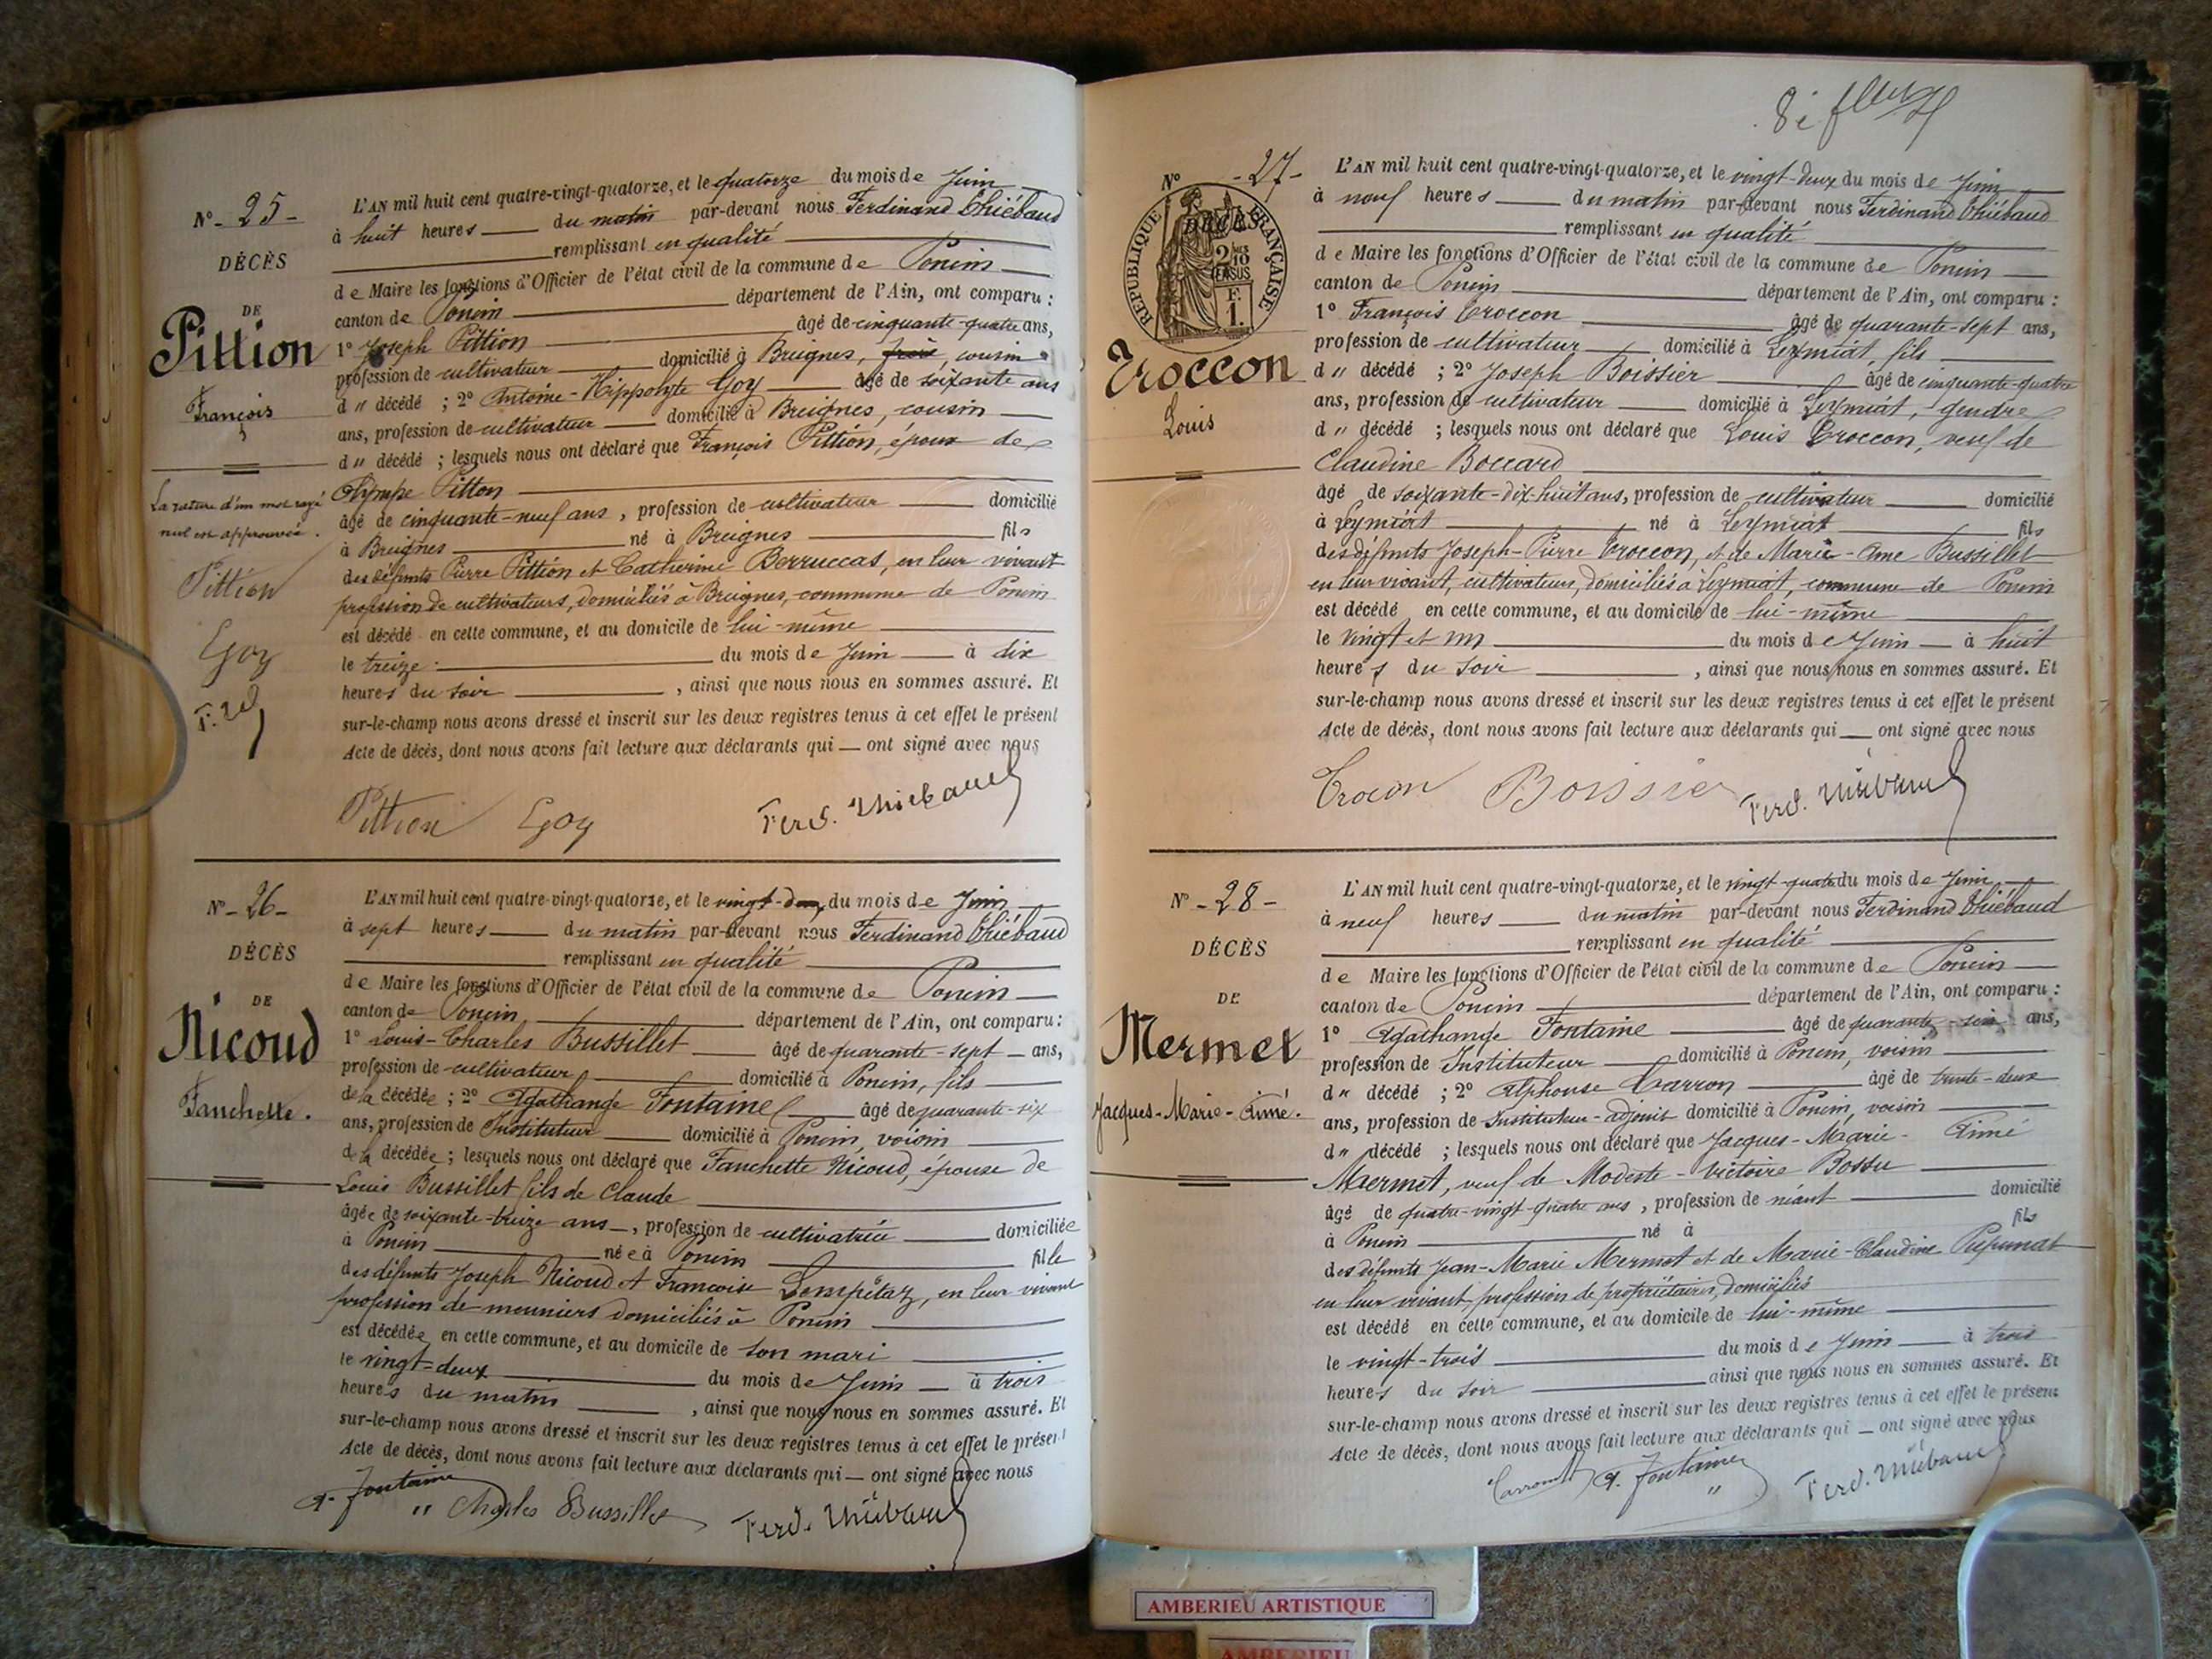 N° - 25 -
DÉCÈS
DE
Pittion
François
La rature d'un mot rayé
nul est approuvée.
Pittion
Goy
F. Td
L'AN mil huit cent quatre-vingt-quatorze, et le quatorze du mois de Juin
à huit heures du matin par-devant nous Ferdinand Thiébaud
remplissant en qualité
de Maire les fonctions d'Officier de l'état civil de la commune de Poncin
canton de Poncin département de l'Ain, ont comparu :
1° Joseph Pittion âgé de cinquante-quatre ans,
profession de cultivateur domicilié à Breignes, frère, cousin
d u décédé ; 2° Antoine-Hippolyte Goy âgé de soixante ans
ans, profession de cultivateur domicilié à Breignes, cousin
d u décédé ; lesquels nous ont déclaré que François Pittion, époux de
Olympe Pitton
âgé de cinquante-neuf ans, profession de cultivateur domicilié
à Breignes né à Breignes fils
des défunts Pierre Pittion et Catherine Berruccas, en leur vivant
profession de cultivateurs, domiciliés à Breignes, commune de Poncin
est décédé en cette commune, et au domicile de lui-même
le treize du mois de Juin à dix
heures du soir, ainsi que nous nous en sommes assuré. Et
sur-le-champ nous avons dressé et inscrit sur les deux registres tenus à cet effet le présent
Acte de décès, dont nous avons fait lecture aux déclarants qui — ont signé avec nous
Pittion Goy Ferd. Thiébaud
N° - 26 -
DÉCÈS
DE
Nicoud
Fanchette.
L'AN mil huit cent quatre-vingt-quatorze, et le vingt-deux du mois de Juin
à sept heures du matin par-devant nous Ferdinand Thiébaud
remplissant en qualité
de Maire les fonctions d'Officier de l'état civil de la commune de Poncin
canton de Poncin département de l'Ain, ont comparu :
1° Louis-Charles Bussillet âgé de quarante-sept ans,
profession de cultivateur domicilié à Poncin, fils
de la décédée ; 2° Agathange Fontaine âgé de quarante-six
ans, profession de Instituteur domicilié à Poncin, voisin
de la décédée ; lesquels nous ont déclaré que Fanchette Nicoud, épouse de
Louis Bussillet fils de Claude
âgée de soixante-treize ans, profession de cultivatrice domiciliée
à Poncin née à Poncin fille
des défunts Joseph Nicoud et Françoise Lempétaz, en leur vivant
profession de meuniers domiciliés à Poncin
est décédée en cette commune, et au domicile de son mari
le vingt-deux du mois de Juin à trois
heures du matin, ainsi que nous nous en sommes assuré. Et
sur-le-champ nous avons dressé et inscrit sur les deux registres tenus à cet effet le présent
Acte de décès, dont nous avons fait lecture aux déclarants qui — ont signé avec nous
A. Fontaine Charles Bussillet Ferd. Thiébaud
8e
N° - 27 -
RÉPUBLIQUE FRANÇAISE
DÉCÈS
2/10
EN SUS
F.
1.
Troccon
Louis
L'AN mil huit cent quatre-vingt-quatorze, et le vingt-deux du mois de Juin
à neuf heures du matin par-devant nous Ferdinand Thiébaud
remplissant en qualité
de Maire les fonctions d'Officier de l'état civil de la commune de Poncin
canton de Poncin département de l'Ain, ont comparu :
1° François Troccon âgé de quarante-sept ans,
profession de cultivateur domicilié à Leymiat, fils
d u décédé ; 2° Joseph Boissier âgé de cinquante-quatre
ans, profession de cultivateur domicilié à Leymiat, gendre
d u décédé ; lesquels nous ont déclaré que Louis Troccon, veuf de
Claudine Boccard
âgé de soixante-dix-huit ans, profession de cultivateur domicilié
à Leymiat né à Leymiat fils
des défunts Joseph-Pierre Troccon, et de Marie-Anne Bussillet
en leur vivant, cultivateurs, domiciliés à Leymiat, commune de Poncin
est décédé en cette commune, et au domicile de lui-même
le vingt et un du mois de Juin à huit
heures du soir, ainsi que nous nous en sommes assuré. Et
sur-le-champ nous avons dressé et inscrit sur les deux registres tenus à cet effet le présent
Acte de décès, dont nous avons fait lecture aux déclarants qui — ont signé avec nous
Trocon Boissier Ferd. Thiébaud
N° - 28 -
DÉCÈS
DE
Mermet
Jacques-Marie-Aimé.
L'AN mil huit cent quatre-vingt-quatorze, et le vingt-quatre du mois de Juin
à neuf heures du matin par-devant nous Ferdinand Thiébaud
remplissant en qualité
de Maire les fonctions d'Officier de l'état civil de la commune de Poncin
canton de Poncin département de l'Ain, ont comparu :
1° Agathange Fontaine âgé de quarante-six ans,
profession de Instituteur domicilié à Poncin, voisin
d u décédé ; 2° Alphonse Carron âgé de trente-deux
ans, profession de Instituteur-adjoint domicilié à Poncin, voisin
d u décédé ; lesquels nous ont déclaré que Jacques-Marie-Aimé
Mermet, veuf de Modeste-Victoire Bossu
âgé de quatre-vingt-quatre ans, profession de néant domicilié
à Poncin né à fils
des défunts Jean-Marie Mermet et de Marie-Claudine
en leur vivant, profession de propriétaires, domiciliés
est décédé en cette commune, et au domicile de lui-même
le vingt-trois du mois de Juin à trois
heures du soir ainsi que nous nous en sommes assuré. Et
sur-le-champ nous avons dressé et inscrit sur les deux registres tenus à cet effet le présent
Acte de décès, dont nous avons fait lecture aux déclarants qui — ont signé avec nous
Carron A. Fontaine Ferd. Thiébaud
AMBERIEU ARTISTIQUE
AMBERIEU